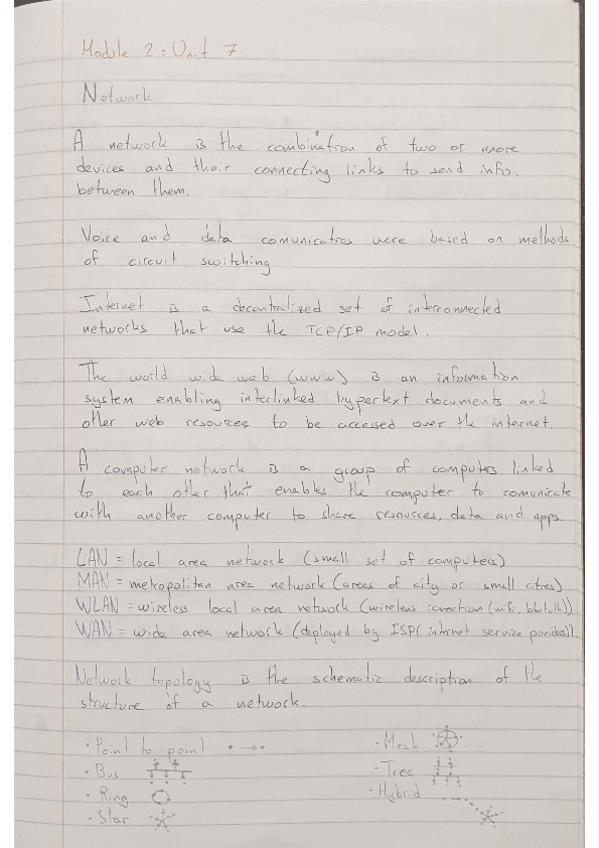 Module 2: Unit 7
Network
A network is the combination of two or more
devices and their connecting links to send info.
between them.
Voice and data comunications were based on methods
of circuit switching
Internet is a decentralized set of interconnected
networks that use the TCP/IP model.
The world wide web (www) is an information
system enabling interlinked hypertext documents and
other web resources to be accessed over the internet.
A computer network is a group of computers linked
to each other that enables the computer to comunicate
with another computer to share resources, data and apps.
LAN = local area network (small set of computers)
MAN = metropolitan area network (areas of city or small cities)
WLAN = wireless local area network (wireless (wifi,
WAN = wide area network (deployed by ISP( internet service
Network topology is the schematic description of the
structure of a network.
· Point to point
· Bus
· Ring
· Star
· Mesh
· Tree
· Hybrid